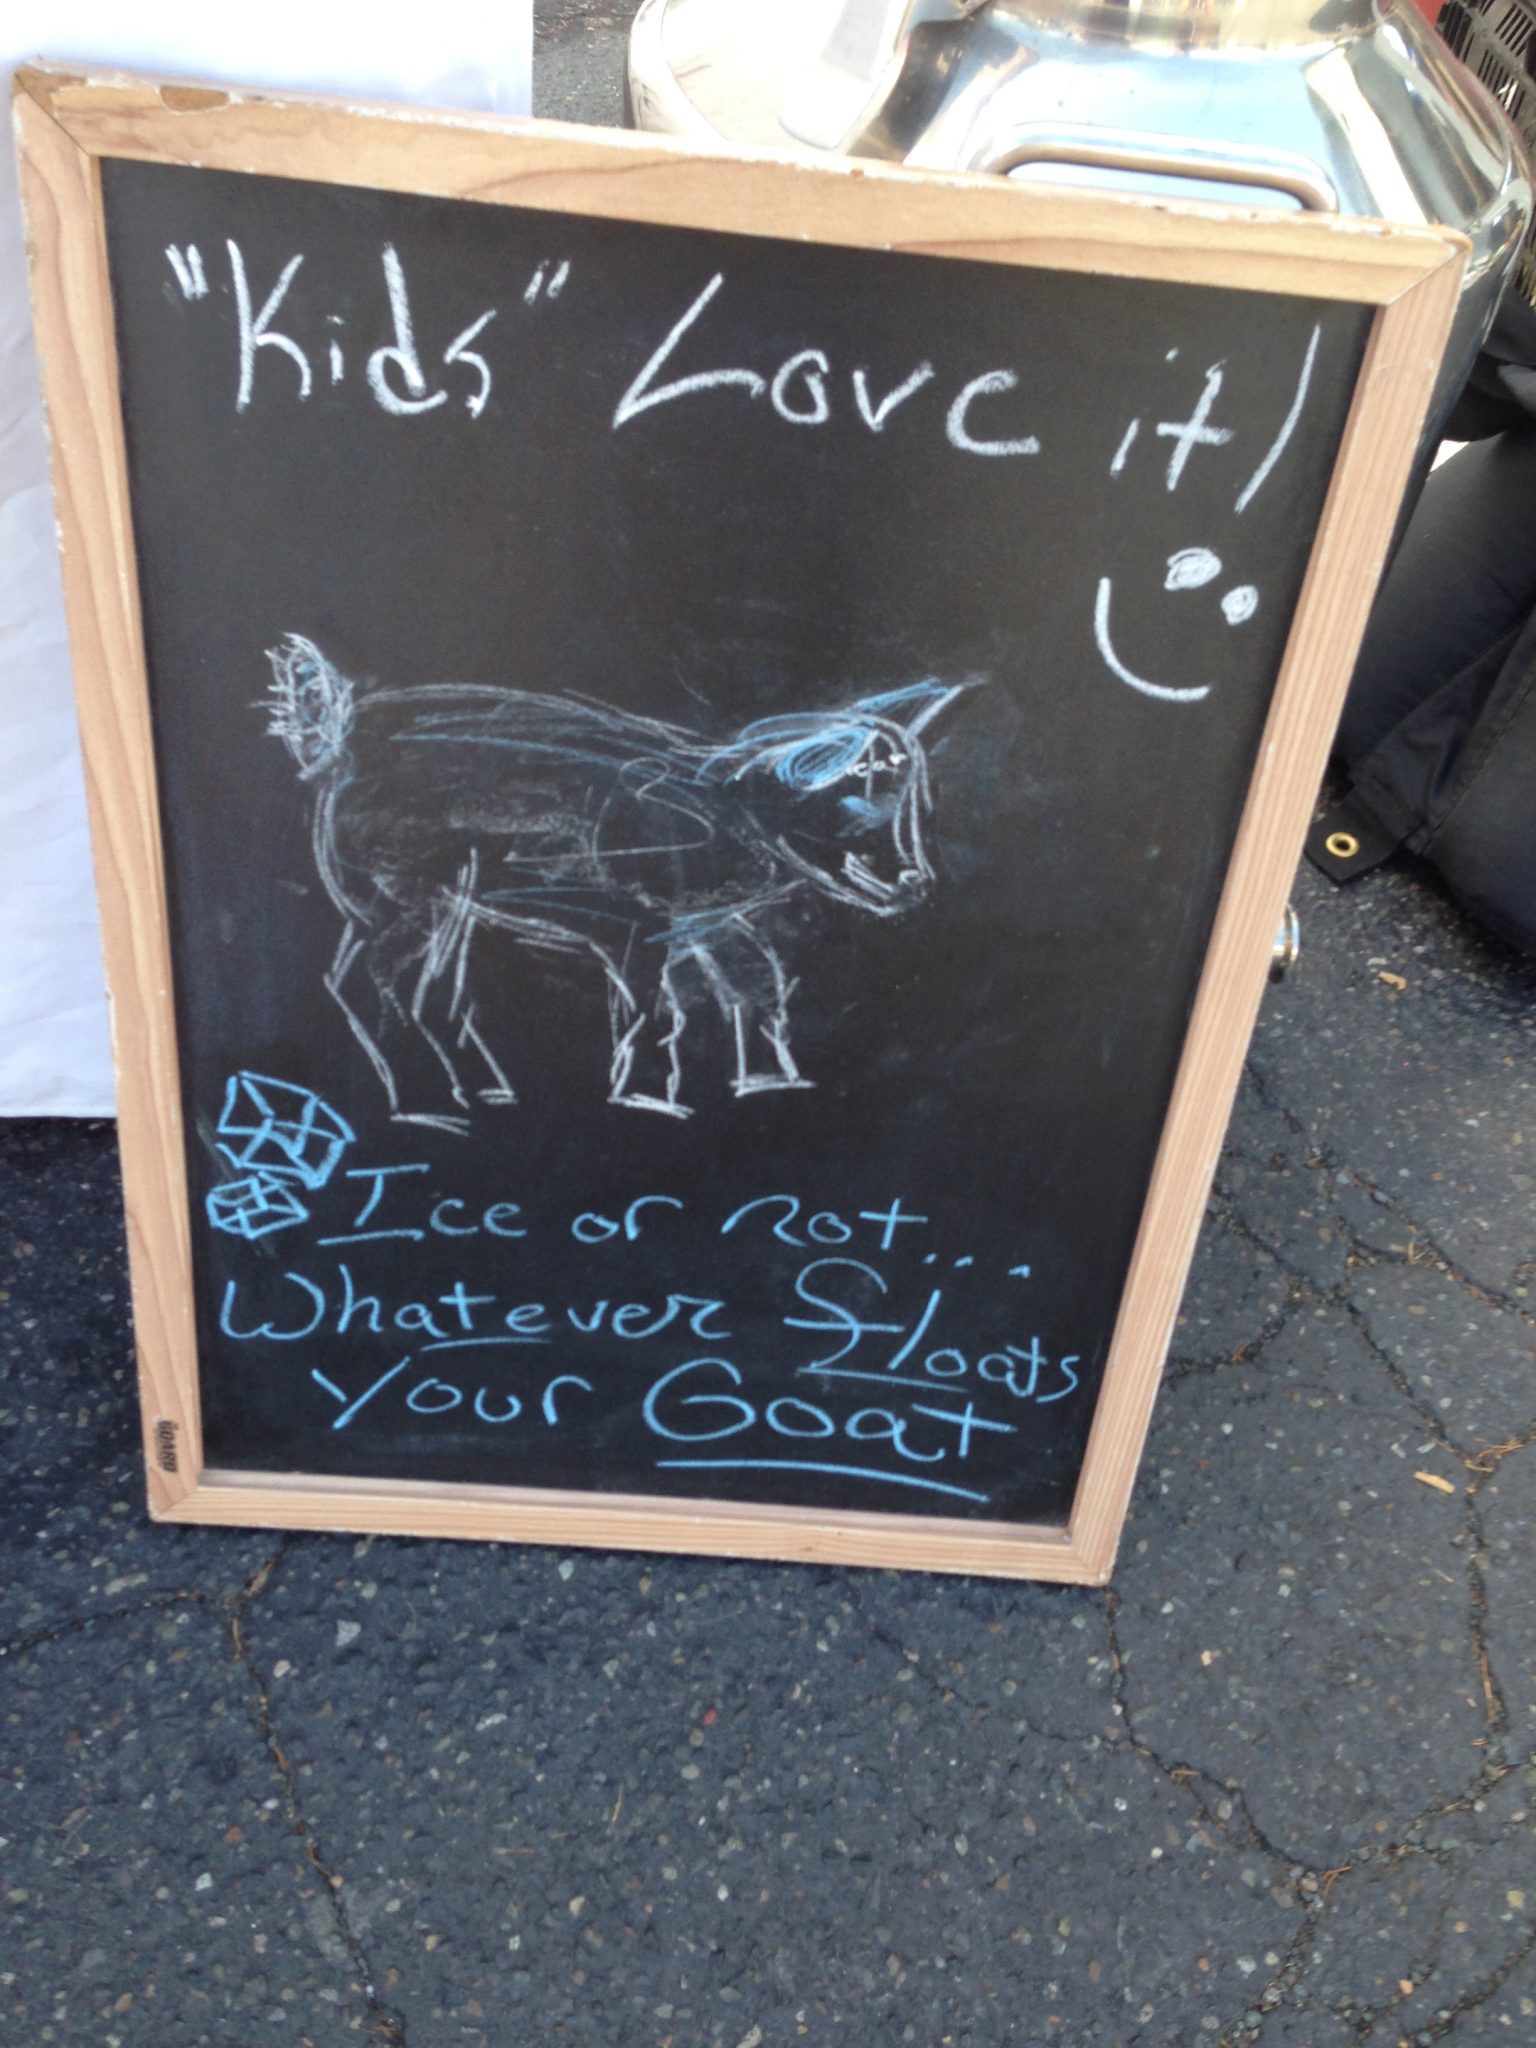 "Kids" Love it!
ear
Ice or not...
Whatever floats
your Goat